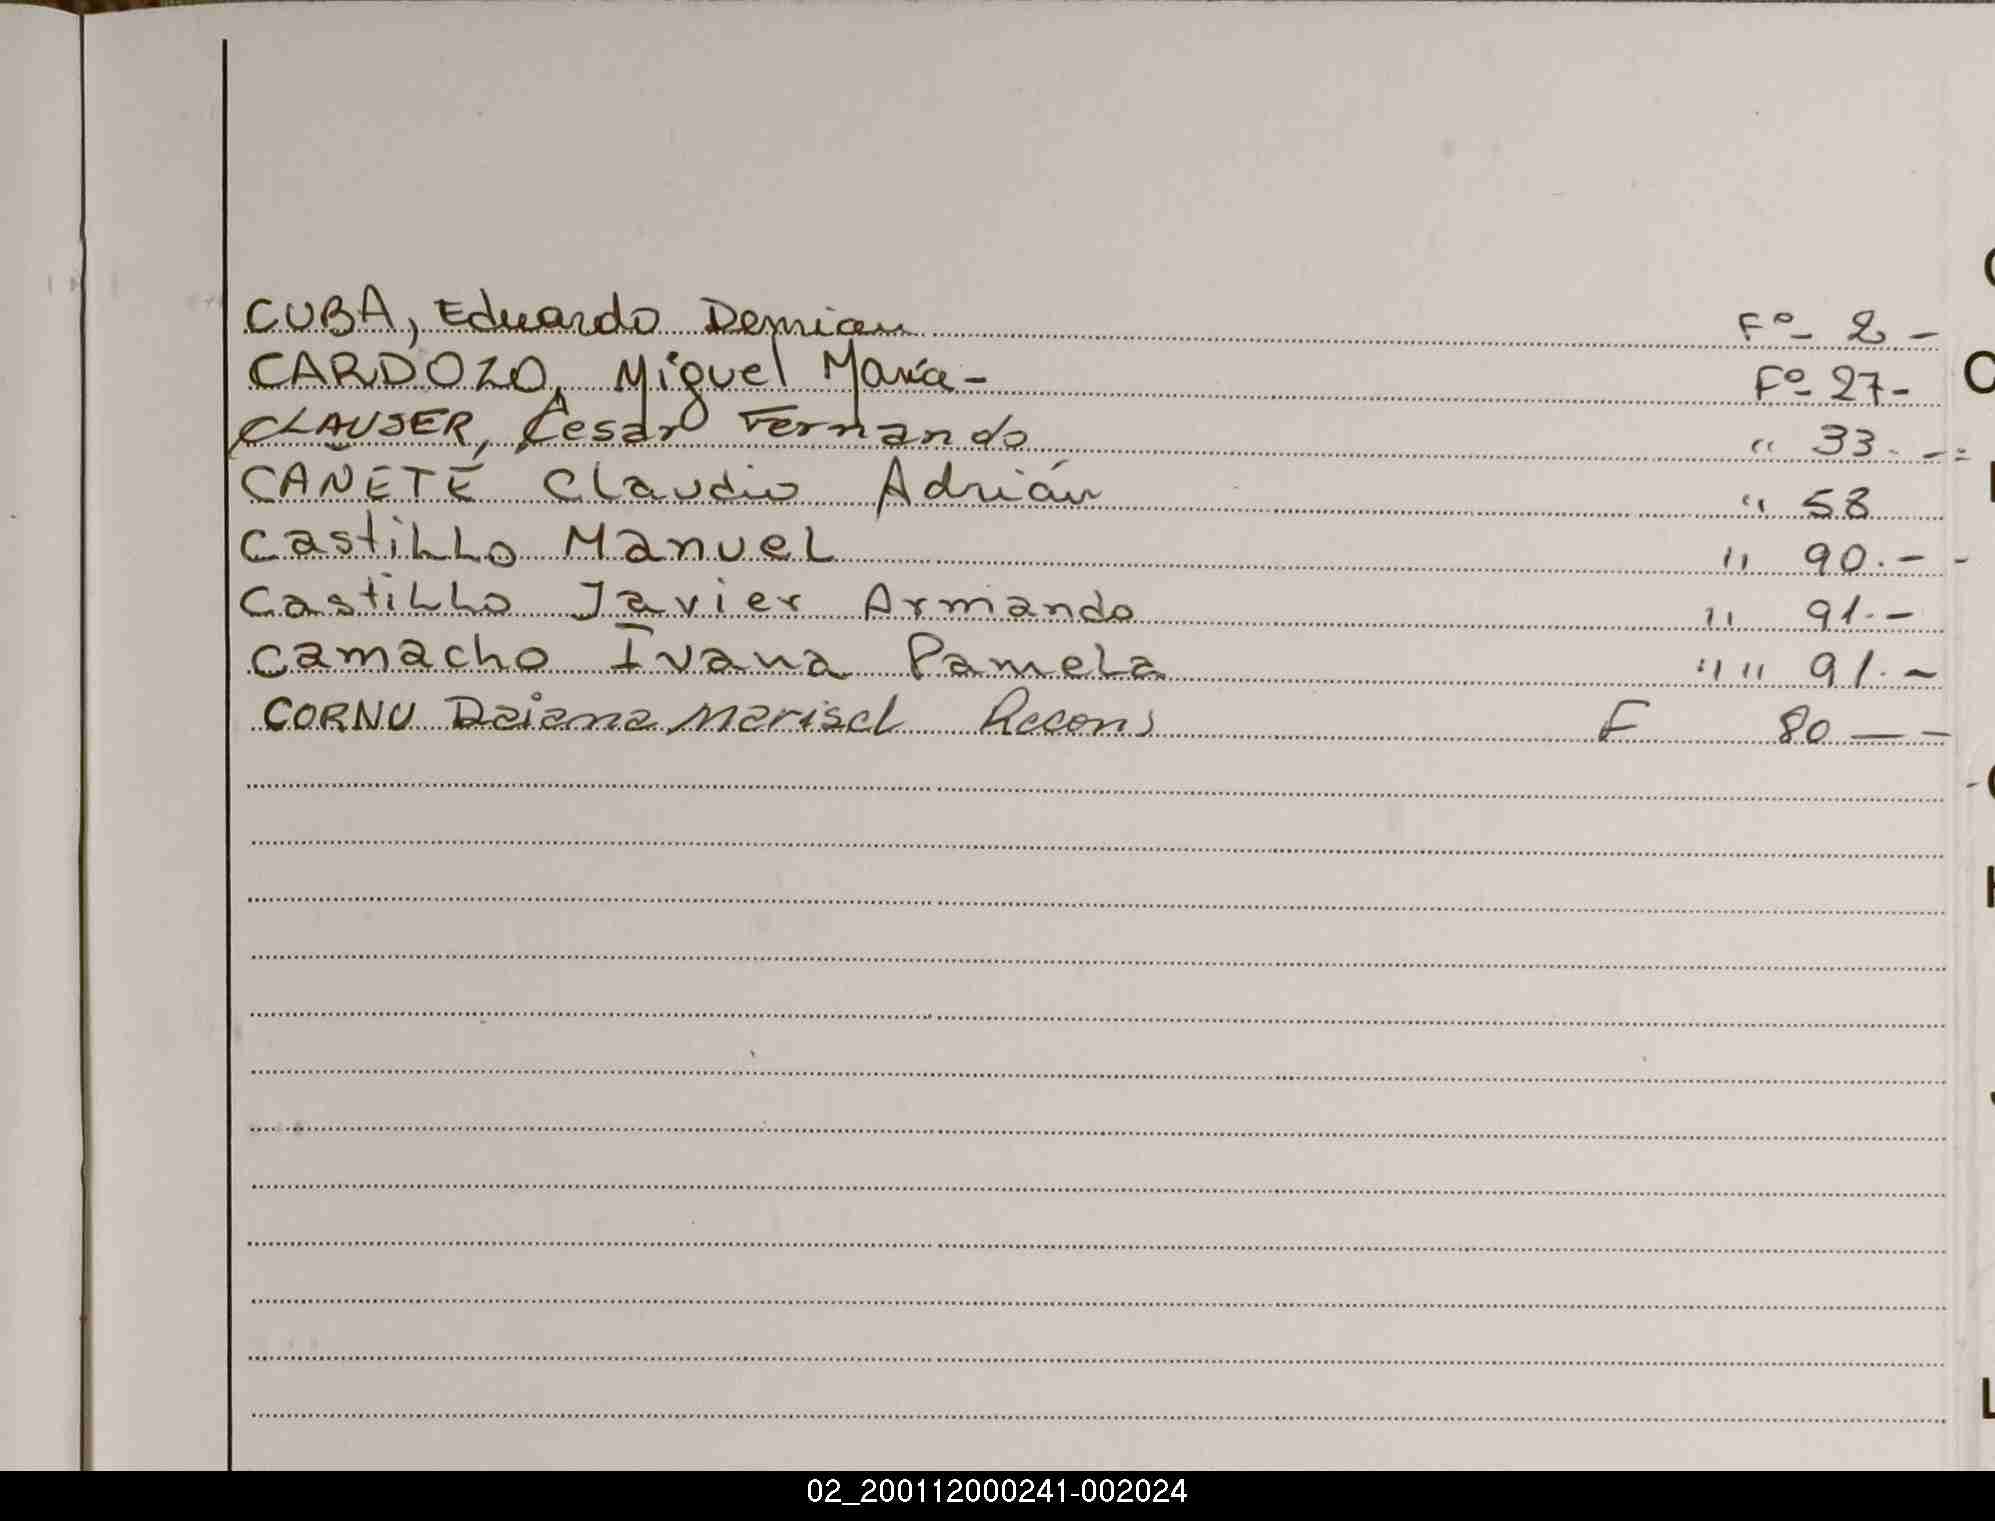 CUBA, Eduardo Demian F°- 2 -
CARDOZO, Miguel María - F°- 27-
CLAUSER, Cesar Fernando " 33. -
CAÑETE Claudio Adrián " 58
Castillo Manuel " 90.- -
Castillo Javier Armando " 91.-
Camacho Ivana Pamela " " 91.-
CORNU Daiana Marisel Recon F 80 — -
02_200112000241-002024